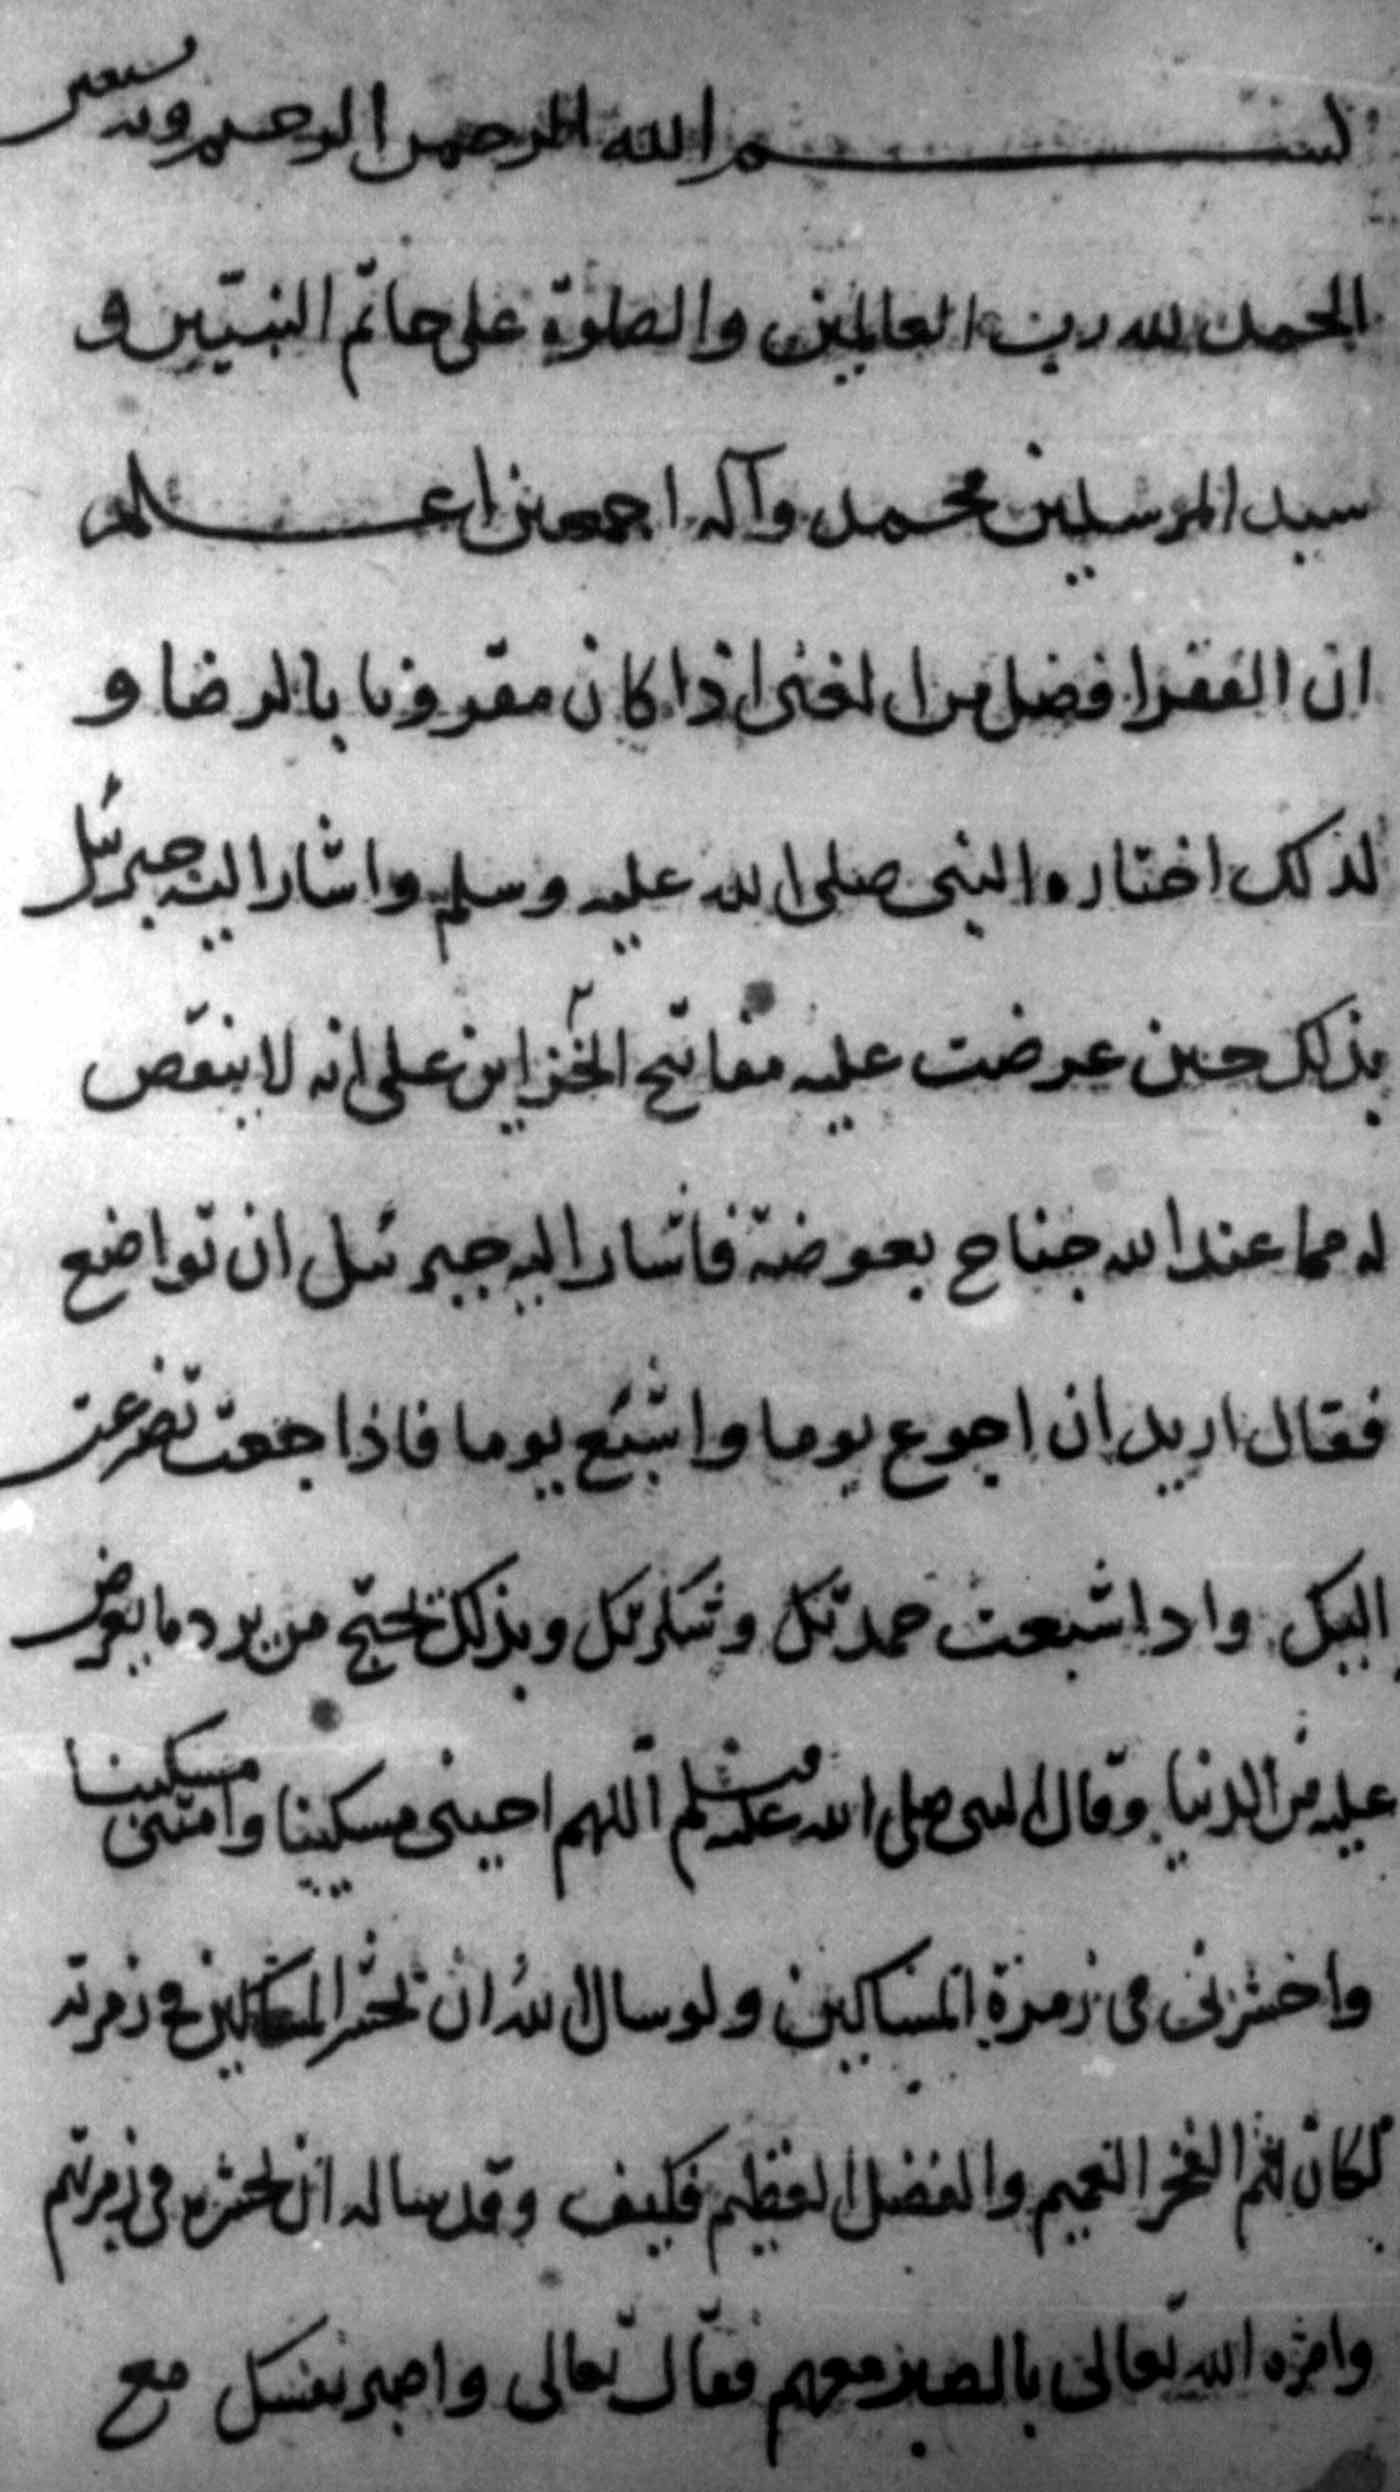 بسم الله الرحمن الرحيم وبه نستعين
الحمد لله رب العالمين والصلوة على خاتم النبيين و
سيد المرسلين محمد وآله اجمعين اعلم
ان الفقر افضل من الغنى اذا كان مقرونا بالرضا و
لذلك اختاره النبى صلى الله عليه وسلم واشار اليه جبرئيل
بذلك حين عرضت عليه مفاتيح الخزاين على انه لا ينقص
له مما عند الله جناح بعوضة فاشار اليه جبرئيل ان تواضع
فقال اريد ان اجوع يوما واشبع يوما فاذا جعت تضرعت
اليك واذا شبعت حمدتك وشكرتك وبذلك تحتج من يرد ما يعرض
عليه من الدنيا وقال النبى صلى الله عليه وسلم اللهم احينى مسكينا وامتنى مسكينا
واحشرنى فى زمرة المساكين ولو سال الله ان تحشر المساكين فى زمرته
لكان لهم الفخر العميم والفضل العظيم فكيف وقد ساله ان يحشره فى زمرتهم
وامره الله تعالى بالصبر معهم فقال تعالى واصبر نفسك مع